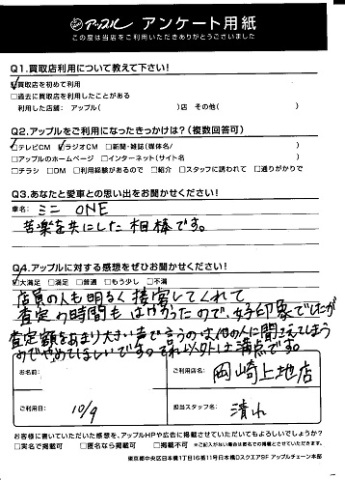 アップル アンケート用紙
この度は当店をご利用いただきありがとうございました
Q1.買取店利用について教えて下さい!
☑買取店を初めて利用
□過去に買取店を利用したことがある
利用した店舗: アップル( )店 その他( )
Q2.アップルをご利用になったきっかけは?(複数回答可)
☑テレビCM ☑ラジオCM □新聞・雑誌(媒体名/ )
□アップルのホームページ □インターネット(サイト名 )
□チラシ □DM □利用経験があるので □紹介 □スタッフに誘われて □通りがかりで
Q3.あなたと愛車との思い出をお聞かせください!
車名: ミニ ONE
苦楽を共にした相棒です。
Q4.アップルに対する感想をぜひお聞かせください!
☑大満足 □満足 □普通 □もう少し □不満
店員の人も明るく接客してくれて
査定の時間もはやかったので、好印象でしたが
査定額をあまり大きい声で言うのは他の人に聞こえてしまう
のでやめてほしいです。それ以外は満点です。
お名前:
ご利用店名: 岡崎上地店
ご利用日: 10/9
担当スタッフ名: 清水
お客様に書いていただいた感想を、アップルHPや広告に掲載させていただいてもよろしいでしょうか?
□実名で掲載可 □匿名なら掲載可 □掲載不可 ※ご記入がない場合は匿名での掲載とさせていただきます。
東京都中央区日本橋1丁目16番11号日本橋Dスクエア9F アップルチェーン本部